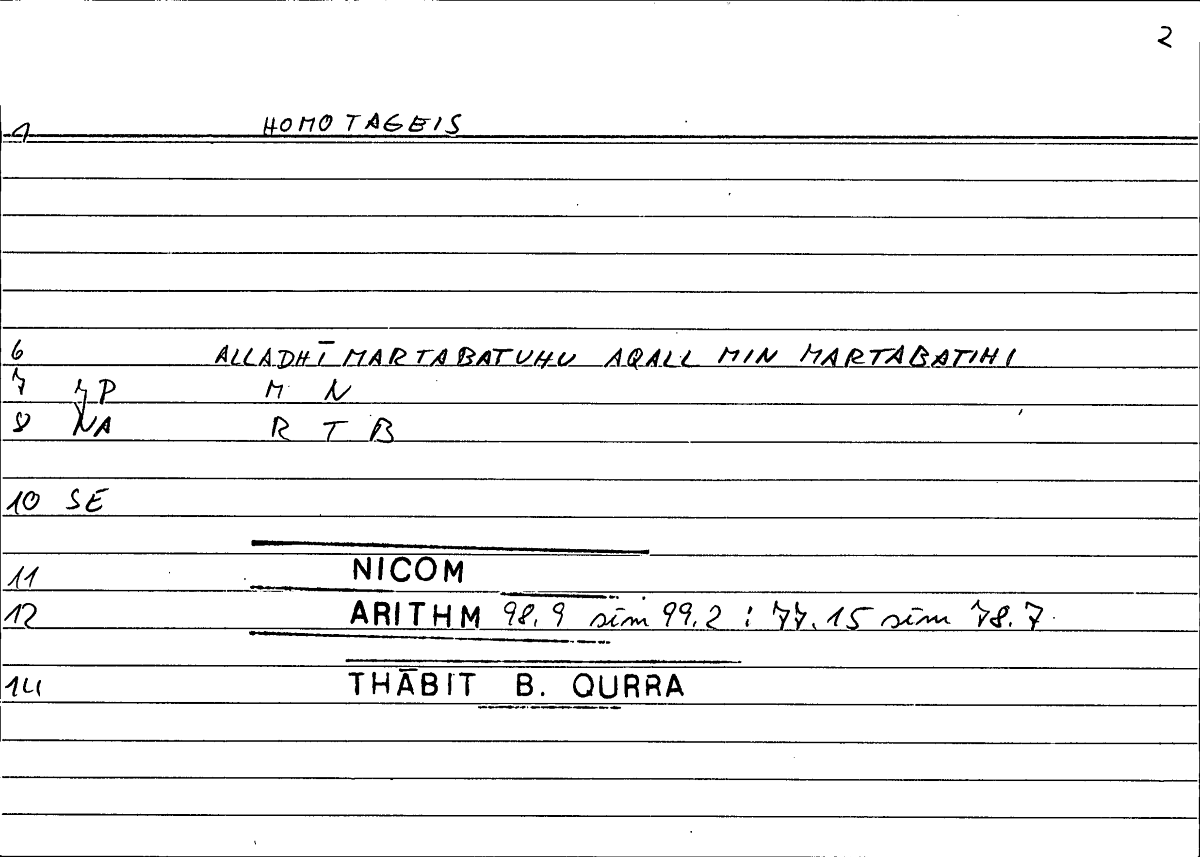 2
1 HOMOTAGEIS
6 ALLADHĪ MARTABATUHU AQALL MIN MARTABATIHI
7 M N
8 NA R T B
10 SE
11 NICOM
12 ARITHM 98.9 sim 99.2 : 77.15 sim 78.7
14 THĀBIT B. QURRA